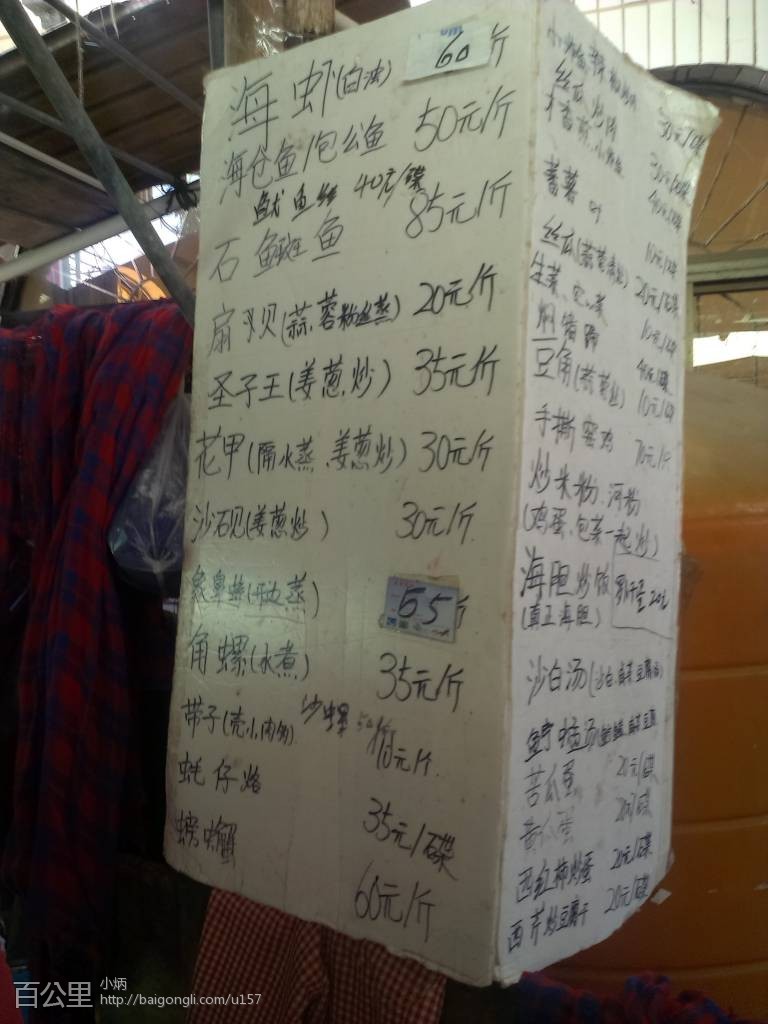 海虾(白灼) 60/斤
海仓鱼/包公鱼 50元/斤
鱿鱼 40元/碟
石斑鱼 85元/斤
扇贝(蒜蓉粉丝蒸) 20元/斤
圣子王(姜葱炒) 35元/斤
花甲(隔水蒸、姜葱炒) 30元/斤
沙石贝(姜葱炒) 30元/斤
象鼻蚌(开边蒸) 55/斤
角螺(水煮) 35元/斤
带子(壳小肉多) 元/斤
沙螺
蚝仔烙 35元/碟
螃蟹 60元/斤
30元/碟
丝瓜炒肉 30元/碟
40元/碟
蕃薯叶 10元/碟
丝瓜(蒜蓉) 20元/碟
生菜、空心菜 10元/碟
焖猪蹄 40元/碟
豆角(蒜蓉炒) 10元/碟
手撕窑鸡 70元/斤
炒米粉、河粉
(鸡蛋、包菜一起炒)
海胆炒饭
(真正海胆)
沙白汤(沙白 豆腐)
苦瓜蛋 20元/碟
黄瓜蛋 20元/碟
西红柿炒蛋 20元/碟
西芹炒豆腐干 20元/碟
百公里 小炳
http://baigongli.com/u157